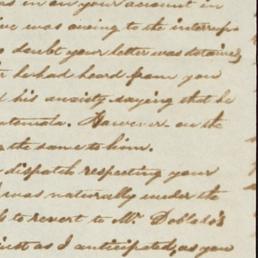 as in on your account in
was owing to the interrup
doubt your letter was detained,
he had heard from you
his anxiety saying that he
. However on the
the same to him.
dispatch respecting your
was naturally under the
to revert to Mr. Doblado's
just as I anticipated, as you